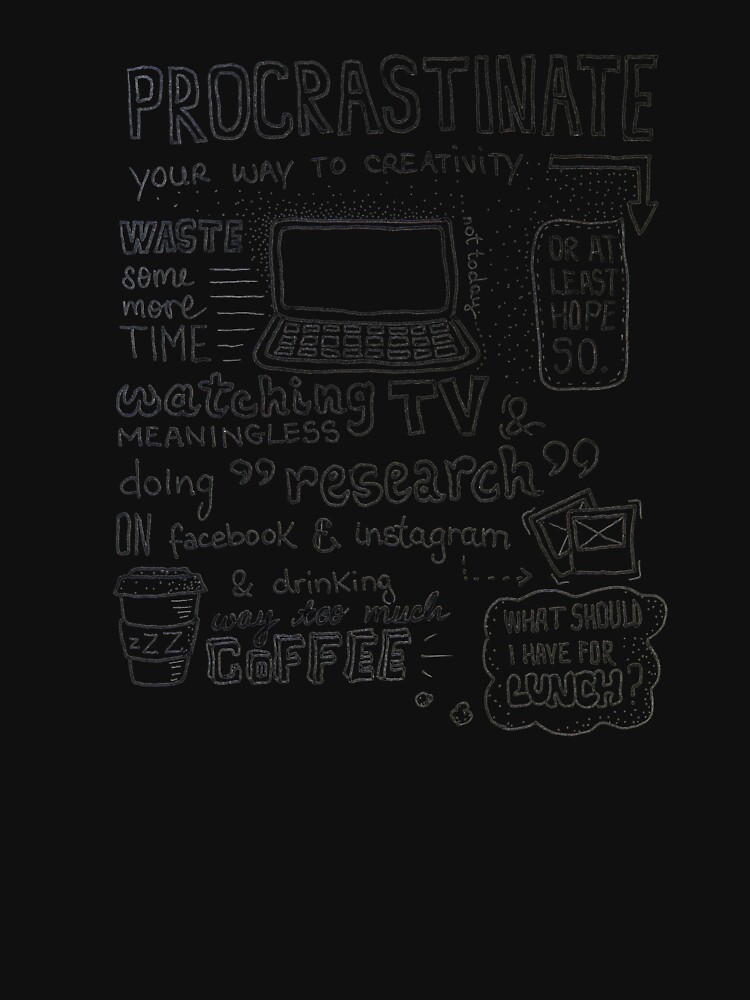 PROCRASTINATE
YOUR WAY TO CREATIVITY
OR AT
LEAST
HOPE
SO.
WASTE
some
more
TIME
not today
watching TV &
MEANINGLESS
doing "research"
ON facebook & instagram
& drinking
way too much
COFFEE
zZZ
WHAT SHOULD
I HAVE FOR
LUNCH?